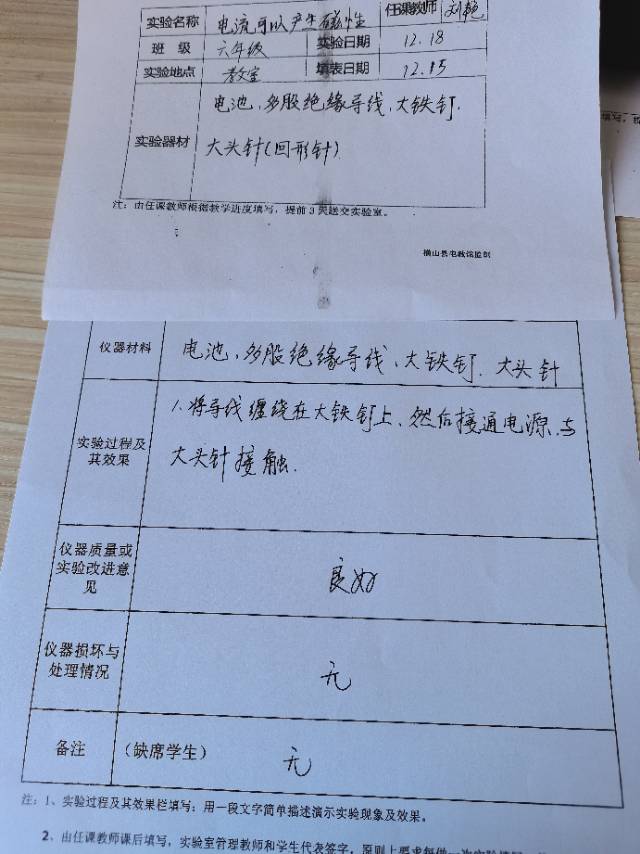 实验名称 电流可以产生磁性 任课教师 刘艳
班 级 六年级 实验日期 12.18
实验地点 教室 填表日期 12.15
电池、多股绝缘导线、大铁钉、
实验器材 大头针(回形针)
注：由任课教师根据教学进度填写，提前3天送交实验室。
横山县电教馆监制
仪器材料 电池、多股绝缘导线、大铁钉、大头针
1.将导线缠绕在大铁钉上、然后接通电源、与
实验过程及
其效果 大头针接触.
仪器质量或
实验改进意
见 良好
仪器损坏与
处理情况 无
备注 (缺席学生) 无
注：1、实验过程及其效果栏填写：用一段文字简单描述演示实验现象及效果。
2、由任课教师课后填写，实验室管理教师和学生代表签字，原则上要求每做一次实验填写一